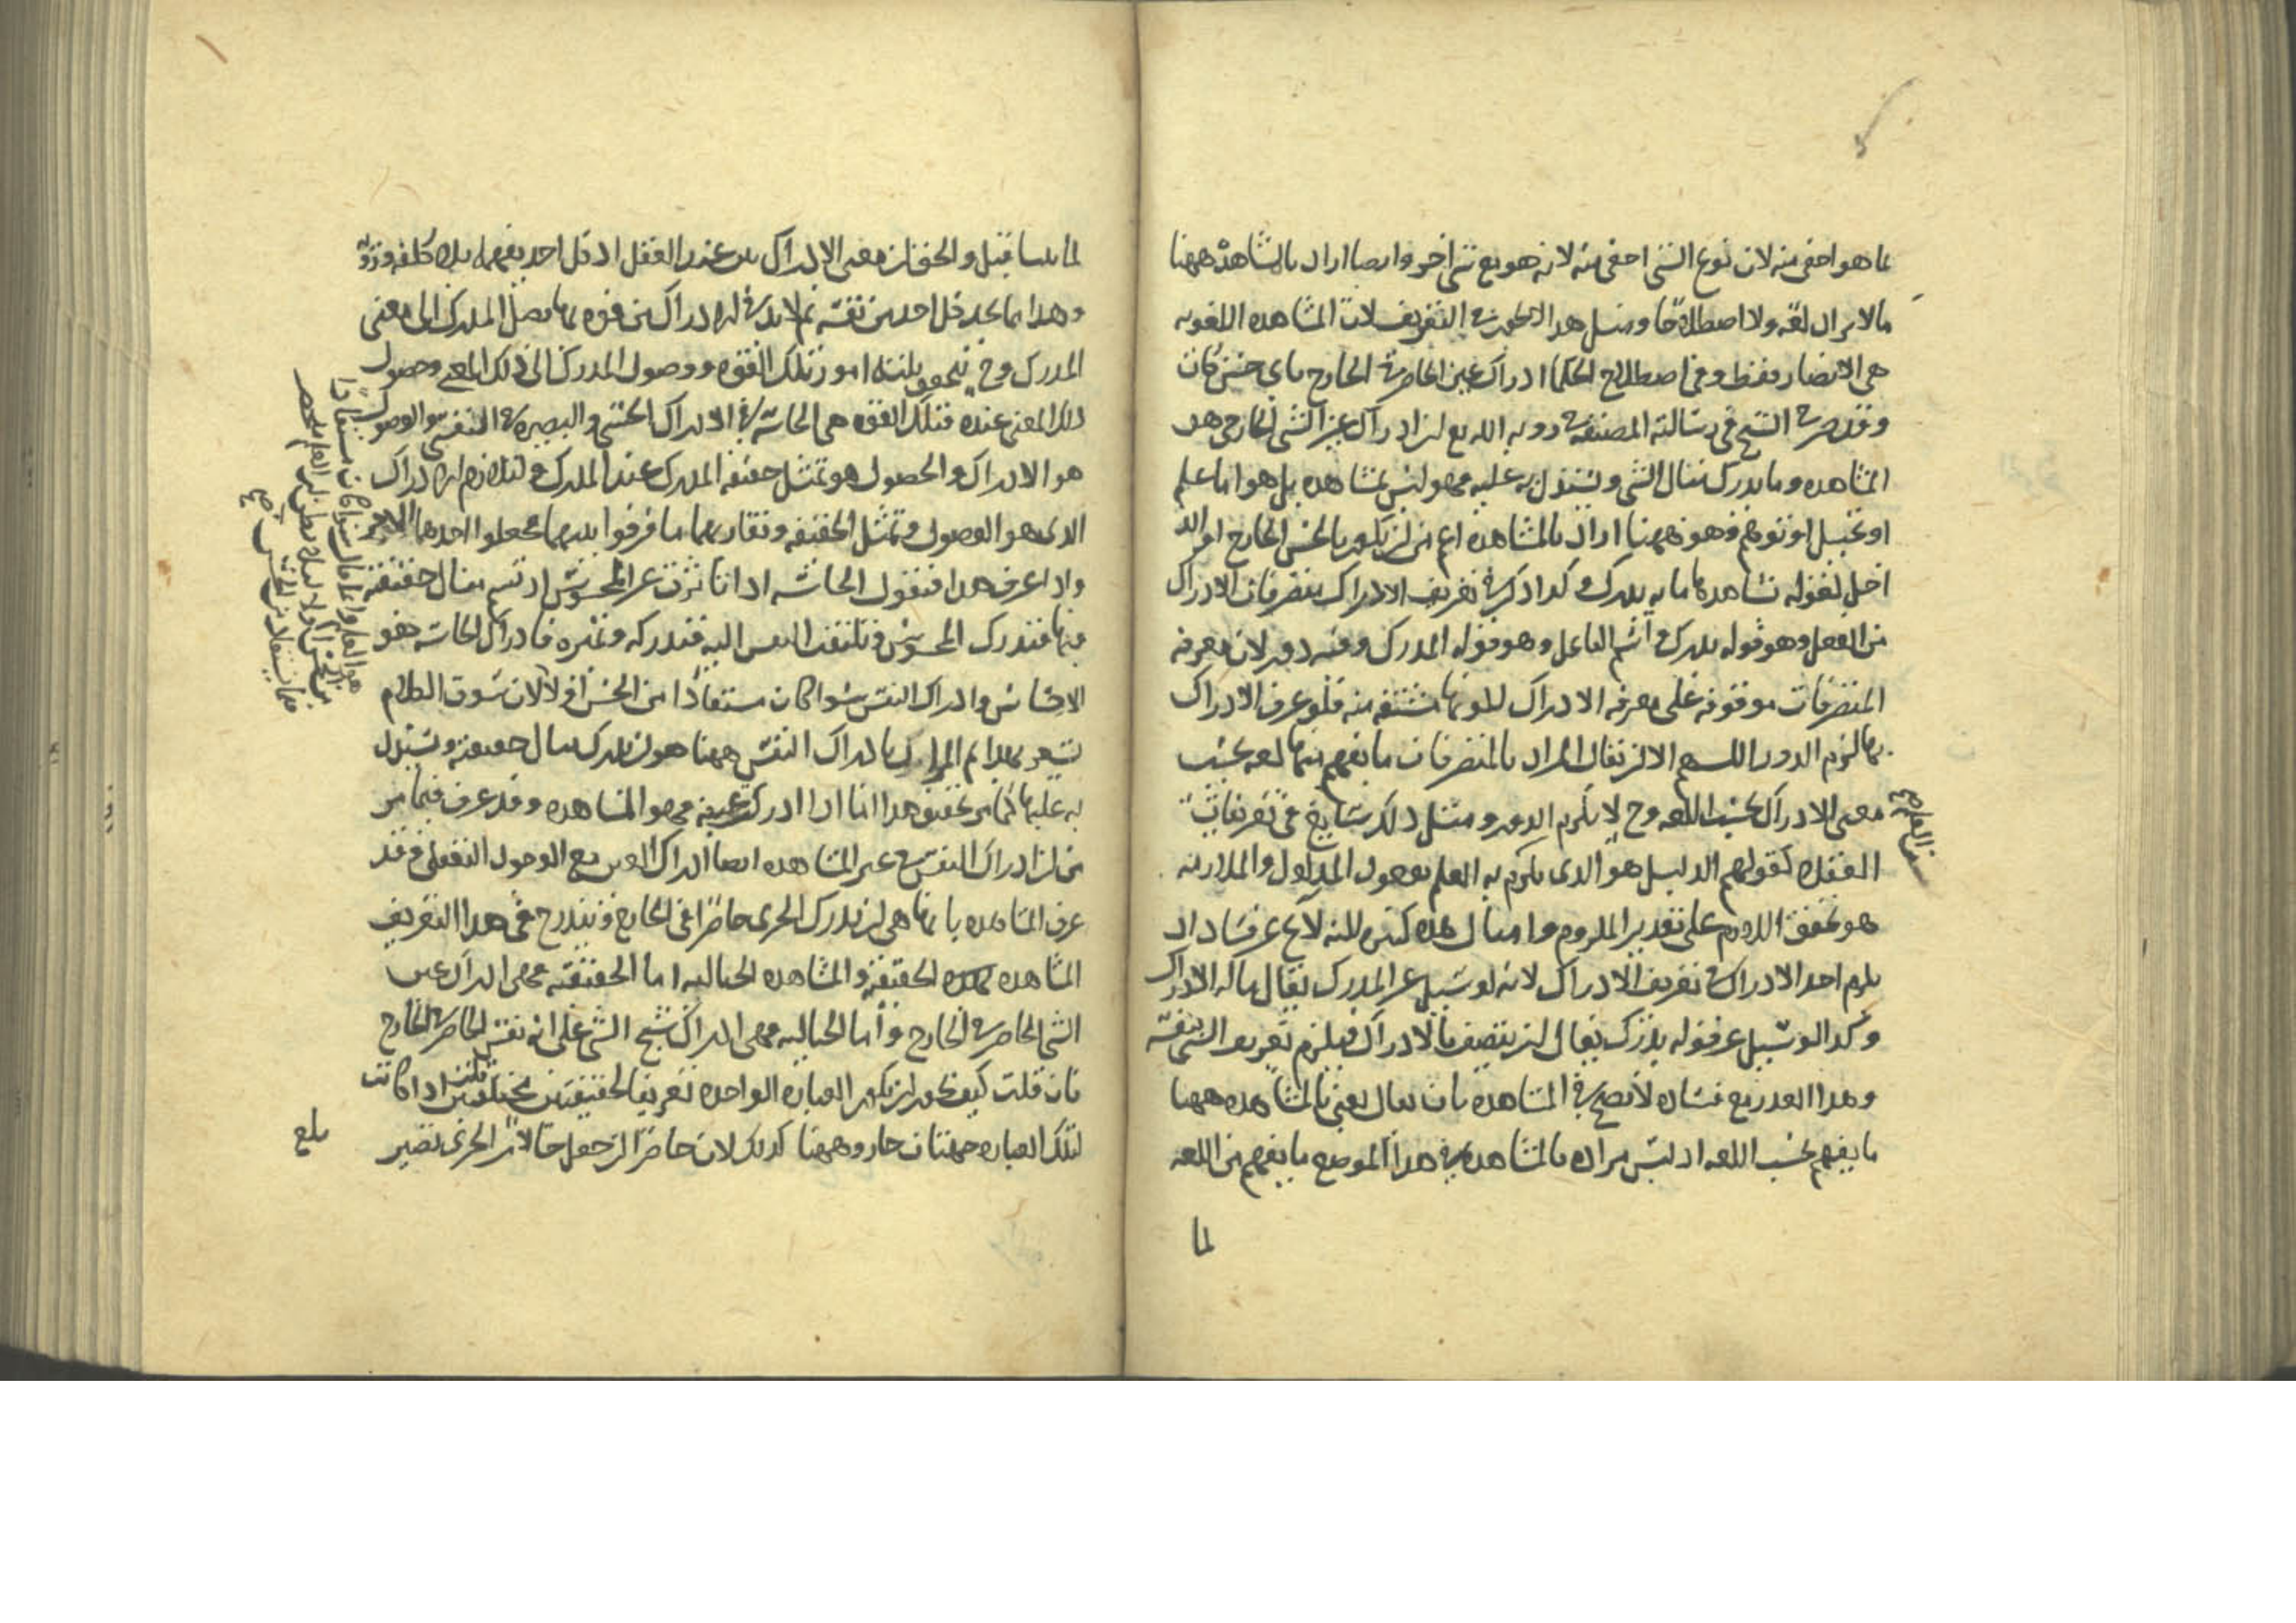 بما هو اخفى منه لان نوع الشى اخفى منه لانه هو مع شى اخر وايضا اراد بالمشاهدة ههنا
مالا يراد لغة ولا اصطلاحا ومثل هذا لا يجوز فى التعريف لان المشاهده اللغويه
هى الابصار فقط وفى اصطلاح الحكما ادراك عين الحاضر فى الخارج باى حس كانت
وقد صرح الشيخ فى رسالته المصنفه فى رويه الله تع ان ادراك عين الشى الخارجى هو
المشاهده وما يدرك مثال الشى ويستدل به عليه فهو ليس بمشاهده بل هو اما علم
او تخيل او توهم وهو ههنا اراد بالمشاهده اعم من ان يكون بالحس الخارج او الداخل
لقوله يشاهدها ما به يدرك وكذا ذكر فى تعريف الادراك متصرفات الادراك
من الفعل وهو قوله يدرك واسم الفاعل وهو قوله المدرك وفيه دور لان معرفه
المتصرفات موقوفه على معرفه الادراك لكونها مشتقه منه فلو عرف الادراك
بها لزم الدور اللهم الا ان يقال المراد بالمتصرفات ما يفهم منها لغه بحسب
معنى الادراك بحسب اللغه وح لا يلزم الدور ومثل ذلك شايع فى تعريفات
العقلا كقولهم الدليل هو الذى يلزم به العلم بوجود المدلول والملازمه
هو تحقق اللازم على تقدير الملزوم وامثال هذه كثيره لكنه لا يخ عن فساد اذ
يلزم اخذ الادراك فى تعريف الادراك لانه لو سيل عن المدرك يقال ماله الادراك
وكذا لو سيل عن قوله يدرك يقال ان يتصف بالادراك فيلزم تعريف الشى بنفسه
وهذا العذر مع فساده لا يصح فى المشاهده بان يقال يعنى بالمشاهده ههنا
ما يفهم بحسب اللغه اذ ليس مراده بالمشاهده فى هذا الموضع ما يفهم من اللغه
لما
لما بينا قبل والحق ان معنى الادراك بين عند العقل اذ كل احد يفهمه بلا كلفه ورويه
وهذا مما يجد كل احد من نفسه ثم لا بد فى الادراك من قوه بها يصل المدرك الى معنى
المدرك وح يتحقق ثلثة امور تلك القوه ووصول المدرك الى ذلك المعنى وحصول
ذلك المعنى عنده فتلك القوه هى الحاسة فى الادراك الحسى والبصيره فى النفسى والوصول
هو الادراك والحصول هو تمثل حقيقه المدرك عند المدرك ولتلازم الادراك
الذى هو الوصول وتمثل الحقيقه وتقاربهما ما فرقوا بينهما فجعلوا احدهما الاخر
واذا عرف هذا فنقول الحاسه اذا تاثرت عن المحسوس ارتسم مثال حقيقته
فيها فتدرك المحسوس وتلتفت النفس اليه فتدركه وتميزه فادراك الحاسة هو
الاحساس وادراك النفس سوا كان مستفادا من الحس او لا لان سوق الكلام
يشعر بهذا ثم المراد بادراك النفس ههنا هو ان يدرك مثال حقيقته ويستدل
به عليها كما مر تحقيق هذا اما اذا ادركت عينه فهو المشاهده وقد عرف فيما مر
من ان ادراك النفس عين المشاهده ايضا ادراك العين مع الوصول العقلى وقد
عرف المشاهده بانها هى ان يدرك الجزى حاضرا فى الخارج ويندرج فى هذا التعريف
المشاهده الحقيقيه والمشاهده الخياليه اما الحقيقيه فهى ادراك عين
الشى الحاضر فى الخارج واما الخياليه فهى ادراك شبح الشى على انه نفس الحاضر فى الخارج
فان قلت كيف يجوز ان تكون العباره الواحده تعريفا لحقيقتين مختلفتين قلت اذا كانت
لتلك العباره جهتان جاز وههنا كذلك لان حاضرا ان جعل حالا من الجزى تصير
بلغ